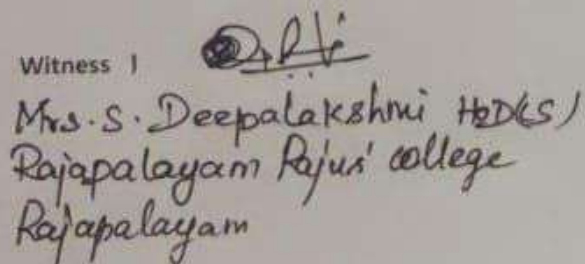 Witness 1
Mrs. S. Deepalakshmi HOD(CS)
Rajapalayam Rajus' college
Rajapalayam